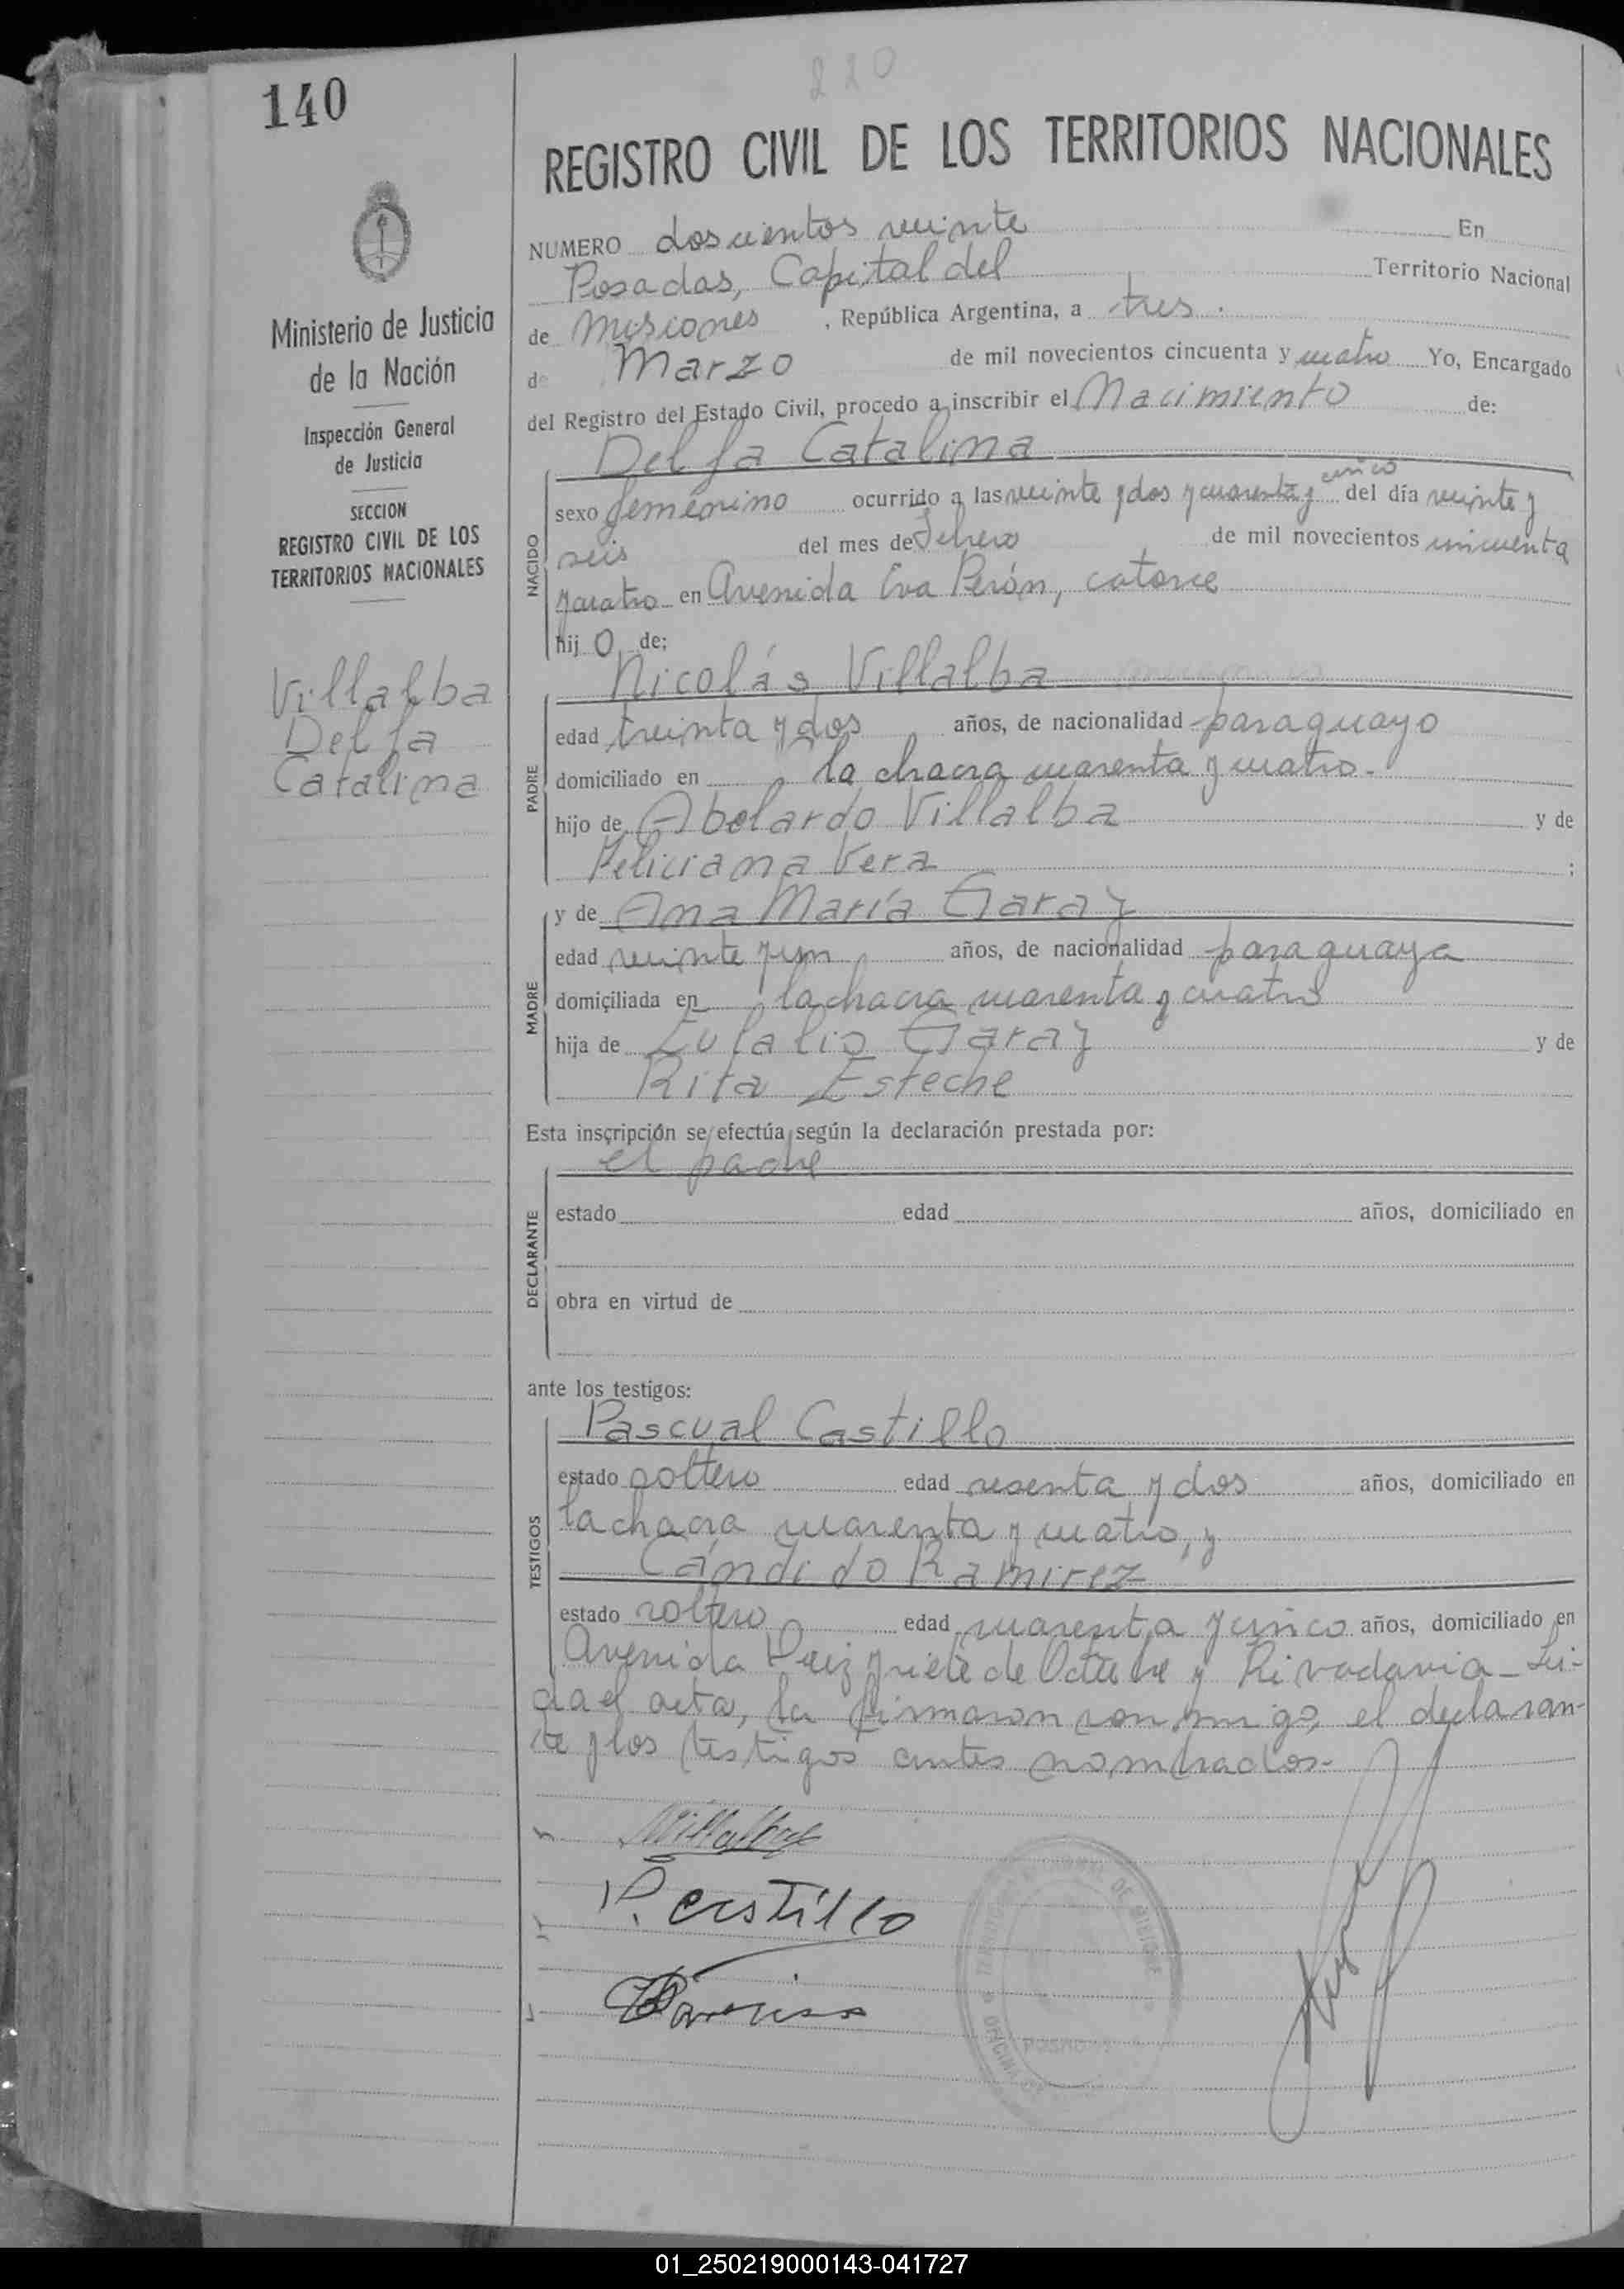 220
140
REGISTRO CIVIL DE LOS TERRITORIOS NACIONALES
NUMERO doscientos veinte En
Posadas, Capital del Territorio Nacional
de Misiones, República Argentina, a tres.
de Marzo de mil novecientos cincuenta y cuatro Yo, Encargado
del Registro del Estado Civil, procedo a inscribir el Nacimiento de:
Ministerio de Justicia
de la Nación
Inspección General
de Justicia
SECCION
REGISTRO CIVIL DE LOS
TERRITORIOS NACIONALES
Villalba
Delfa
Catalina
NACIDO
Delfa Catalina
sexo femenino ocurrido a las veinte y dos y cuarenta y cinco del día veinte y
seis del mes de Febrero de mil novecientos cincuenta
y cuatro en Avenida Eva Perón, catorce
hij o de:
PADRE
Nicolás Villalba
edad treinta y dos años, de nacionalidad paraguayo
domiciliado en la chacra cuarenta y cuatro.
hijo de Abelardo Villalba y de
Feliciana Vera ;
MADRE
y de Ana María Garay
edad veinte y un años, de nacionalidad paraguaya
domiciliada en la chacra cuarenta y cuatro
hija de Eulalio Garay y de
Rita Esteche
Esta inscripción se efectúa según la declaración prestada por:
DECLARANTE
el padre
estado edad años, domiciliado en
obra en virtud de
ante los testigos:
TESTIGOS
Pascual Castillo
estado soltero edad sesenta y dos años, domiciliado en
la chacra cuarenta y cuatro, y
Cándido Ramirez
estado soltero edad cuarenta y cinco años, domiciliado en
Avenida Diez y siete de Octubre y Rivadavia - Leí-
da el acta, la firmaron conmigo, el declaran-
te y los testigos antes nombrados.-
Villalba
P. castillo
POSADAS
01_250219000143-041727